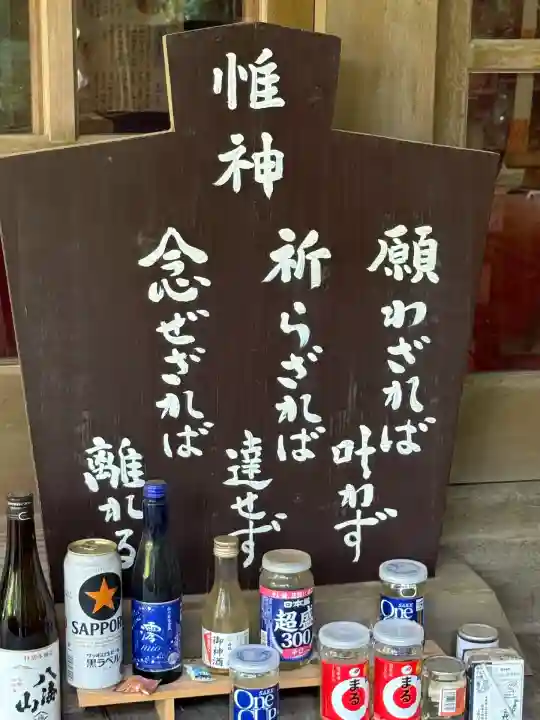 惟神
願わざれば
叶わず
祈らざれば
達せず
念ぜざれば
離れる
八海山
SAPPORO
黒ラベル
澪
mio
御神酒
日本盛
超盛
300
SAKE
One
SAKE
One
CUP
まる
まる